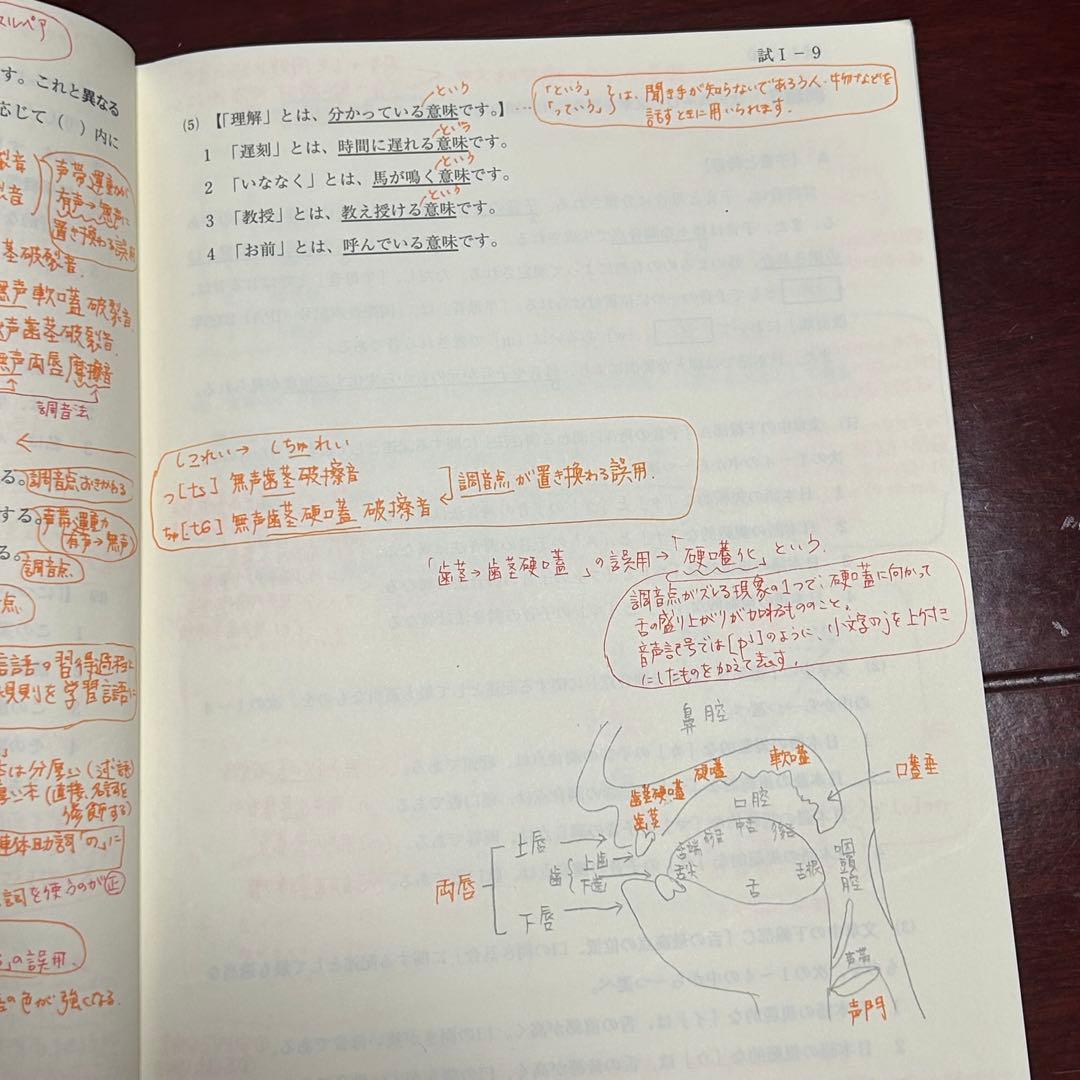 スルペア
す。これと異なる
応じて（　）内に
声帯運動が
有声→無声に
置き換わる誤用
無声軟口蓋破裂音
無声歯茎破裂音
無声両唇摩擦音
調音法
る。調音点おきかわる
する。声帯運動
(有声→無声)
る。
調音点
言語の習得過程
規則を学習言語に
は分厚い(述語)
厚い本(直接、名詞を
修飾する)
連体助詞「の」に
詞を使うのが㊣
の誤用.
の色が強くなる.
試Ⅰ－9
(5) 【「理解」とは、分かっている意味です。】…
という
「という」
「っていう」
は、聞き手が知らないであろう人・物などを
話すときに用いられます.
1 「遅刻」とは、時間に遅れる意味です。
という
2 「いななく」とは、馬が鳴く意味です。
という
3 「教授」とは、教え授ける意味です。
という
4 「お前」とは、呼んでいる意味です。
しつれい→ しちゅれい
つ[ts] 無声歯茎破擦音
ちゅ[tɕ] 無声歯茎硬口蓋 破擦音
調音点が置き換わる誤用.
「歯茎→歯茎硬口蓋」の誤用→「硬口蓋化」という.
調音点がズレる現象の1つで、硬口蓋に向かって
舌の盛り上がりが加わるもののこと。
音声記号では[pʲ]のように、小文字のjを上付き
にしたものを加えて表す.
鼻腔
軟口蓋
硬口蓋
歯茎硬口蓋
歯茎
口蓋垂
口腔
前舌
中舌
後舌
舌端
舌尖
舌根
舌
咽頭腔
上唇
歯
上歯
下歯
両唇
下唇
声帯
声門